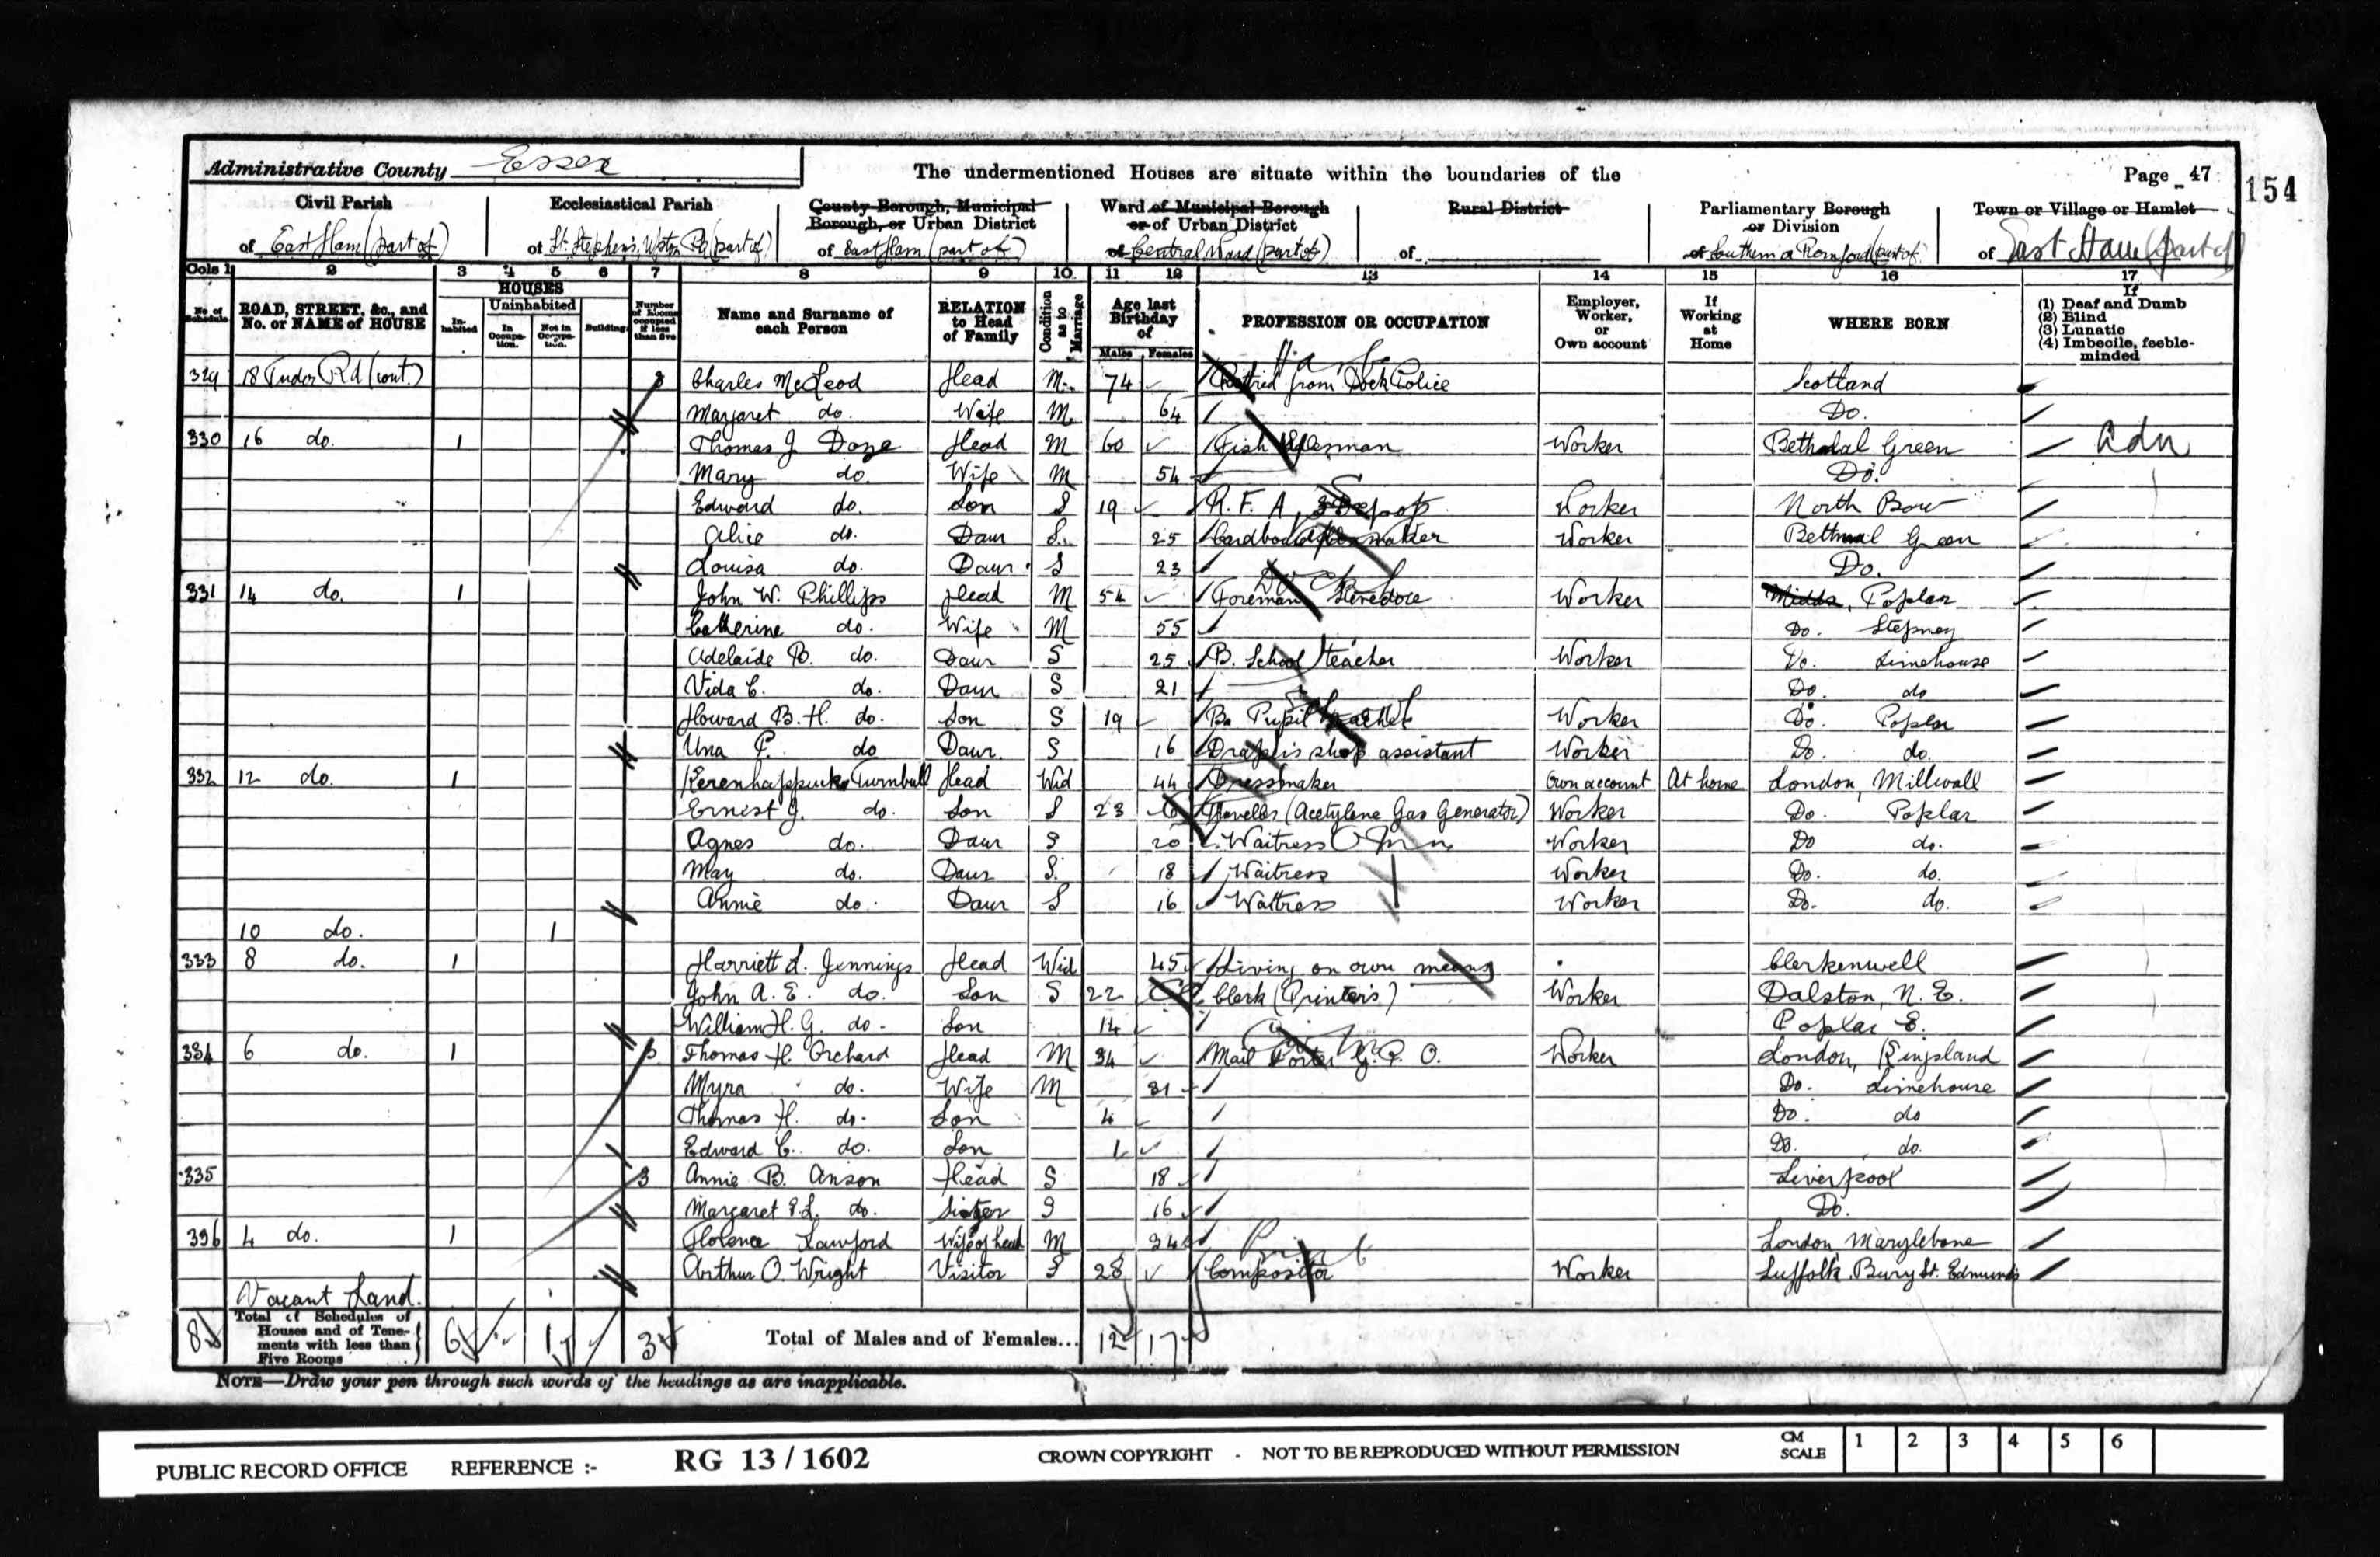 Administrative County Essex
The undermentioned Houses are situate within the boundaries of the
Page 47
154
Civil Parish
of East Ham (part of)
Ecclesiastical Parish
of St. Stephen's, Upton Pk (part of)
County Borough, Municipal Borough, or Urban District
of East Ham (part of)
Ward of Municipal Borough or of Urban District
of Central Ward (part of)
Rural District
of
Parliamentary Borough or Division
of Southern or Romford (part of)
Town or Village or Hamlet
of East Ham (part of)
Cols 1 2 3 4 5 6 7 8 9 10 11 12 13 14 15 16 17
No. of Schedule
ROAD, STREET, &c., and No. or NAME of HOUSE
HOUSES
Inhabited
Uninhabited
In Occupation.
Not in Occupation.
Building
Number of Rooms occupied if less than five
Name and Surname of each Person
RELATION to Head of Family
Condition as to Marriage
Age last Birthday of
Males Females
PROFESSION OR OCCUPATION
Employer, Worker, or Own account
If Working at Home
WHERE BORN
If
(1) Deaf and Dumb
(2) Blind
(3) Lunatic
(4) Imbecile, feeble-minded
329 18 Tudor Rd (cont.) 3 Charles McLeod Head M. 74 Retired from Dock Police Scotland
Margaret do. Wife M 64 Do.
330 16 do. 1 Thomas J Head M 60 Fish Salesman Worker Bethnal Green
Mary do. Wife M 54 Do.
Edward do. Son S 19 R. F. A, Worker North Bow
Alice do. Daur S. 25 Cardboard Box maker Worker Bethnal Green
Louisa do. Daur S 23 Do.
331 14 do. 1 John W. Phillips Head M 54 Foreman Stevedore Worker Middx, Poplar
Catherine do. Wife M 55 Do. Stepney
Adelaide B. do. Daur S 25 B. School teacher Worker Do. Limehouse
Vida C. do. Daur S 21 Do. do
Howard B. H. do. Son S 19 Pupil teacher Worker Do. Poplar
Una P. do Daur. S 16 Draper's shop assistant Worker Do. do.
332 12 do. 1 Kerenhappuch Turnbull Head Wid 44 Dressmaker Own account At home London, Millwall
Ernest J. do. Son S 23 Traveller (Acetylene Gas Generator) Worker Do. Poplar
Agnes do. Daur S 20 Waitress Worker Do do.
May do. Daur S. 18 Waitress Worker Do. do.
Annie do. Daur S 16 Waitress Worker Do. do.
10 do. 1
333 8 do. 1 Harriett L. Jennings Head Wid 45 Living on own means Clerkenwell
John A. E. do. Son S 22 Clerk (Printers) Worker Dalston, N. E.
William H. G. do. Son 14 Poplar E.
334 6 do. 1 3 Thomas H. Orchard Head M 34 Mail Porter G. P. O. Worker London, Kingsland
Myra do. Wife M 31 Do. Limehouse
Thomas H. do. Son 4 Do. do
Edward C. do. Son 1 Do. do.
335 3 Annie B. Anson Head S 18 Liverpool
Margaret E. L. do. Sister S 16 Do.
336 4 do. 1 Florence Lawford Wife of head M 34 London, Marylebone
Arthur O. Wright Visitor S 28 Compositor Worker Suffolk, Bury St. Edmunds
Vacant Land.
8 Total of Schedules of Houses and of Tenements with less than Five Rooms 6 1 3 Total of Males and of Females... 12 17
NOTE—Draw your pen through such words of the headings as are inapplicable.
PUBLIC RECORD OFFICE REFERENCE :- RG 13 / 1602 CROWN COPYRIGHT - NOT TO BE REPRODUCED WITHOUT PERMISSION CM SCALE 1 2 3 4 5 6